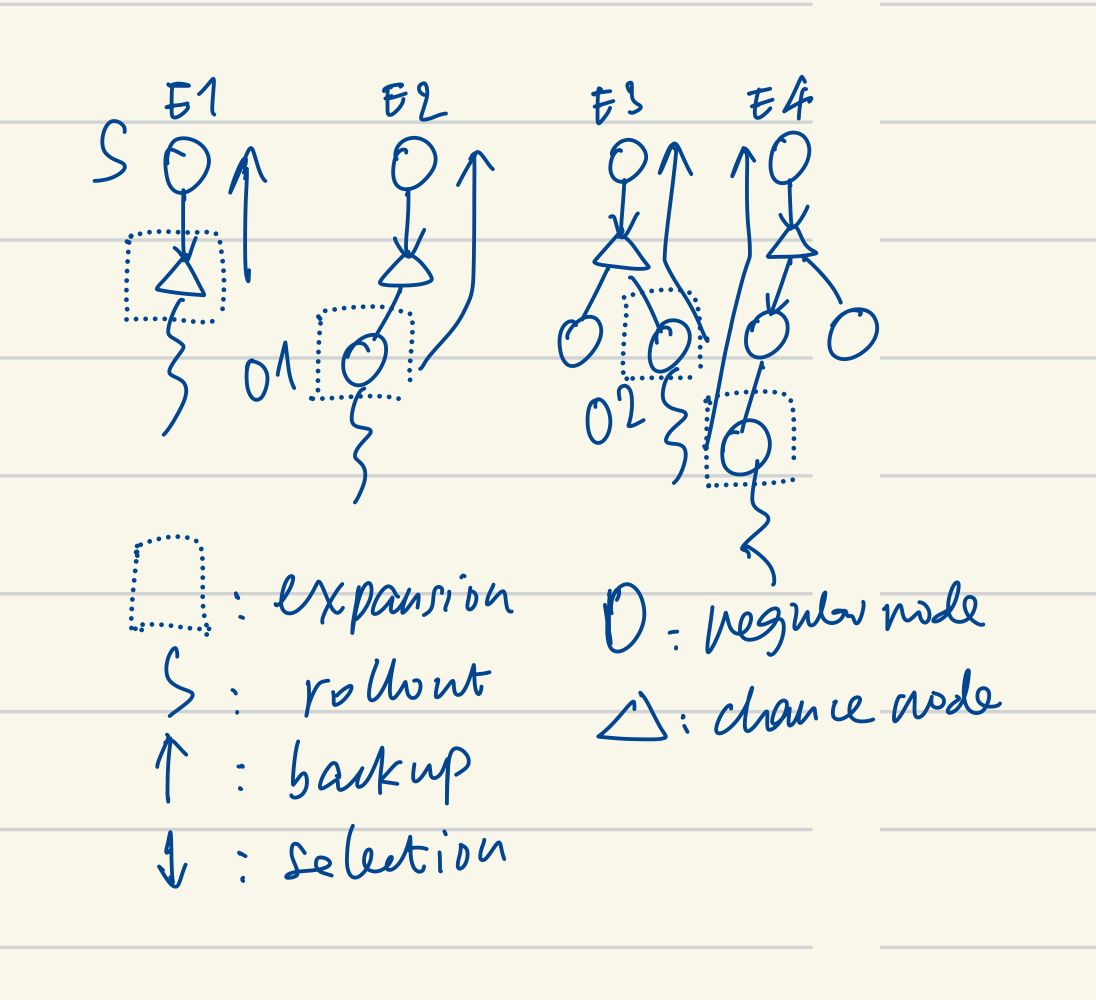 E1 E2 E3 E4
S
O1
O2
: expansion
: rollout
: backup
: selection
: regular node
: chance node